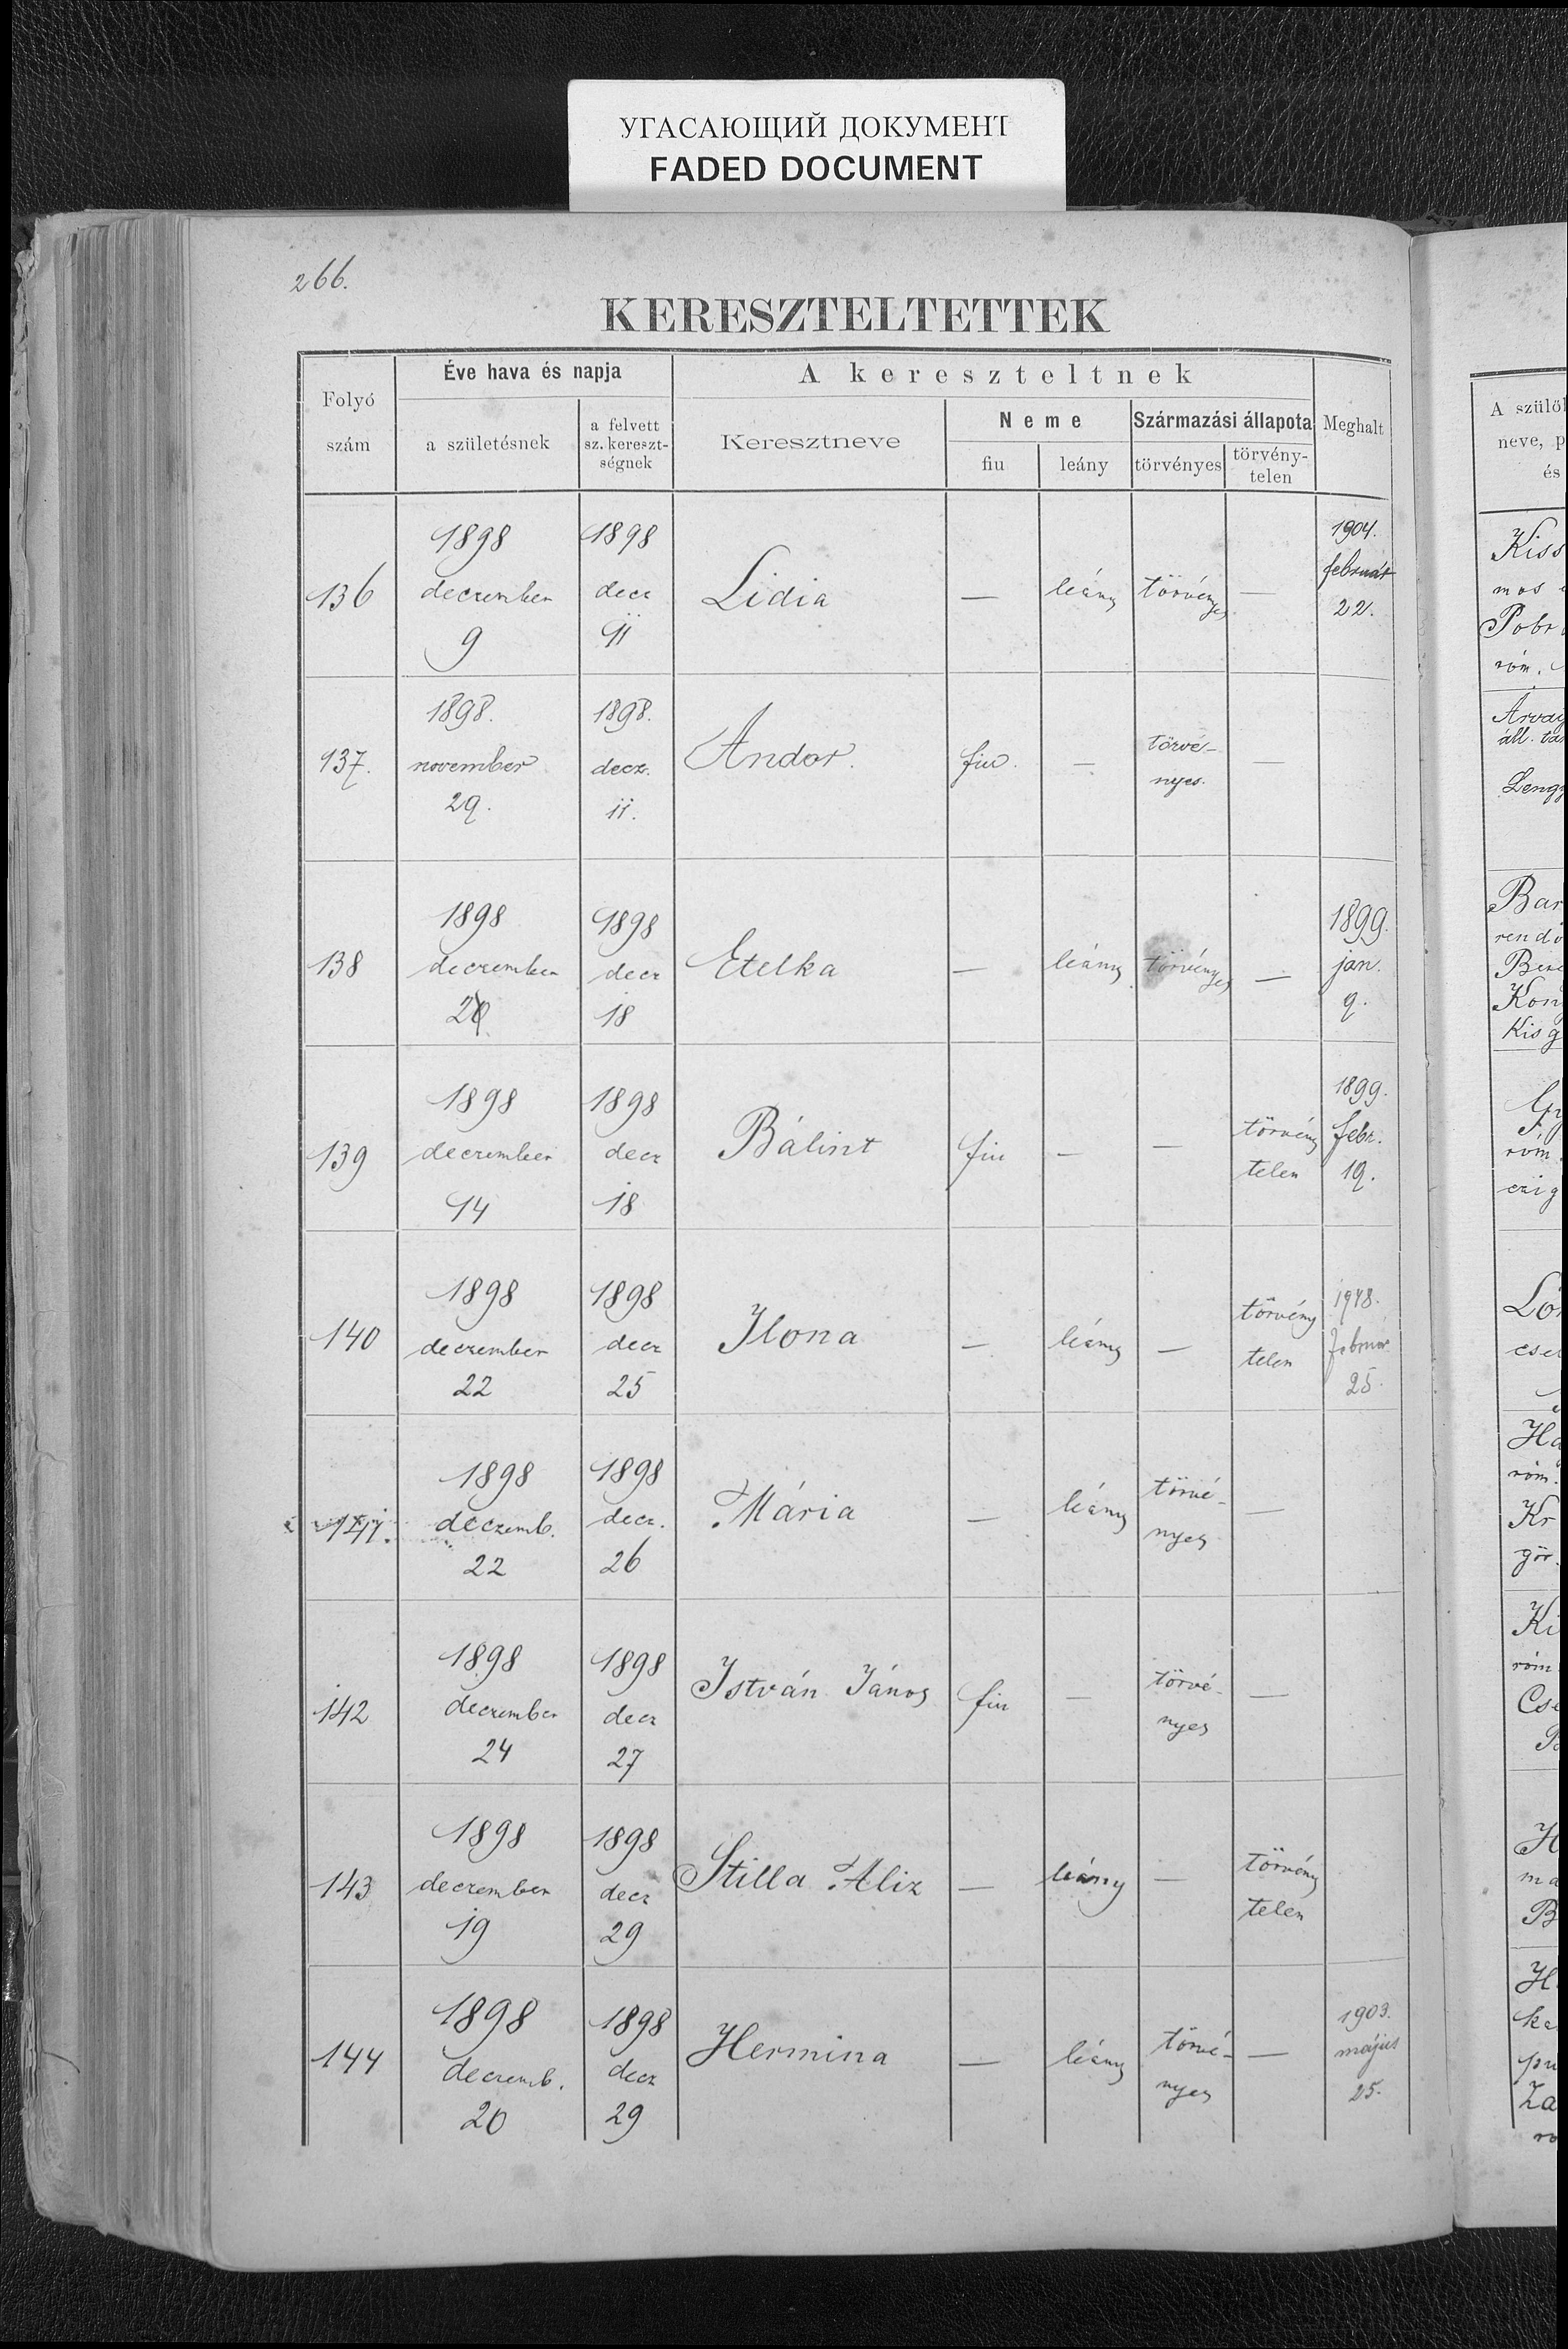 УГАСАЮЩИЙ ДОКУМЕНТ
FADED DOCUMENT
266.
KERESZTELTETTEK
Folyó szám
Éve hava és napja
a születésnek
a felvett sz. kereszt-ségnek
A kereszteltnek
Keresztneve
Neme
fiu
leány
Származási állapota
törvényes
törvény-telen
Meghalt
136
1898 deczember 9
1898 decz 11
Lidia
—
leány
törvényes
—
1904. február 22.
137.
1898. november 29.
1898. decz. 11.
Andor.
fiu.
—
törvé-nyes.
—
138
1898 deczember
1898 decz 18
Etelka
—
leány
törvényes
—
1899. jan. 9.
139
1898 deczember 14
1898 decz 18
Bálint
fiu
—
—
törvény telen
1899. febr. 19.
140
1898 deczember 22
1898 decz 25
Ilona
—
leány
—
törvény telen
február 25.
141.
1898 deczemb. 22
1898 decz. 26
Mária
—
leány
törvé-nyes
—
142
1898 deczember 24
1898 decz 27
István János
fiu
—
törvé-nyes
—
143
1898 deczember 19
1898 decz 29
Stilla Aliz
—
leány
—
törvény telen
144
1898 deczemb. 20
1898 decz 29
Hermina
—
leány
törvé-nyes
—
1903. május 25.
A szülő
neve, p
és
Kiss
mos
róm.
áll. ta
Leng
Bar
rend
Kon
Kis g
róm.
czig
Lő
cse
Ha
róm.
Kr
gör.
Ki
róm
Cse
H
ma
B
H
ke
pu
Za